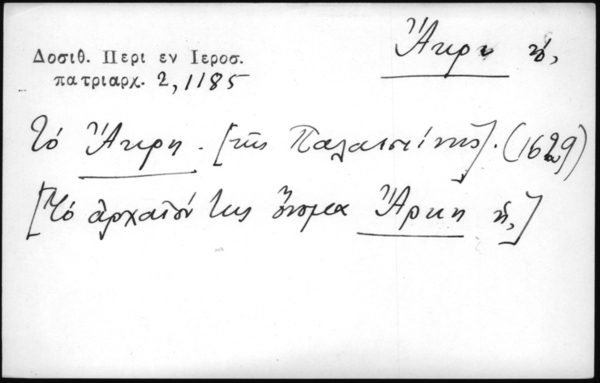 Ἄκρι τό,
Δοσιθ. Περι εν Ιεροσ.
πατριαρχ. 2,1185
τὸ Ἄκρη. [τῆς Παλαιστίνης]. (1629)
[τὸ ἀρχαῖόν της ὄνομα Ἄρκη ἡ,]